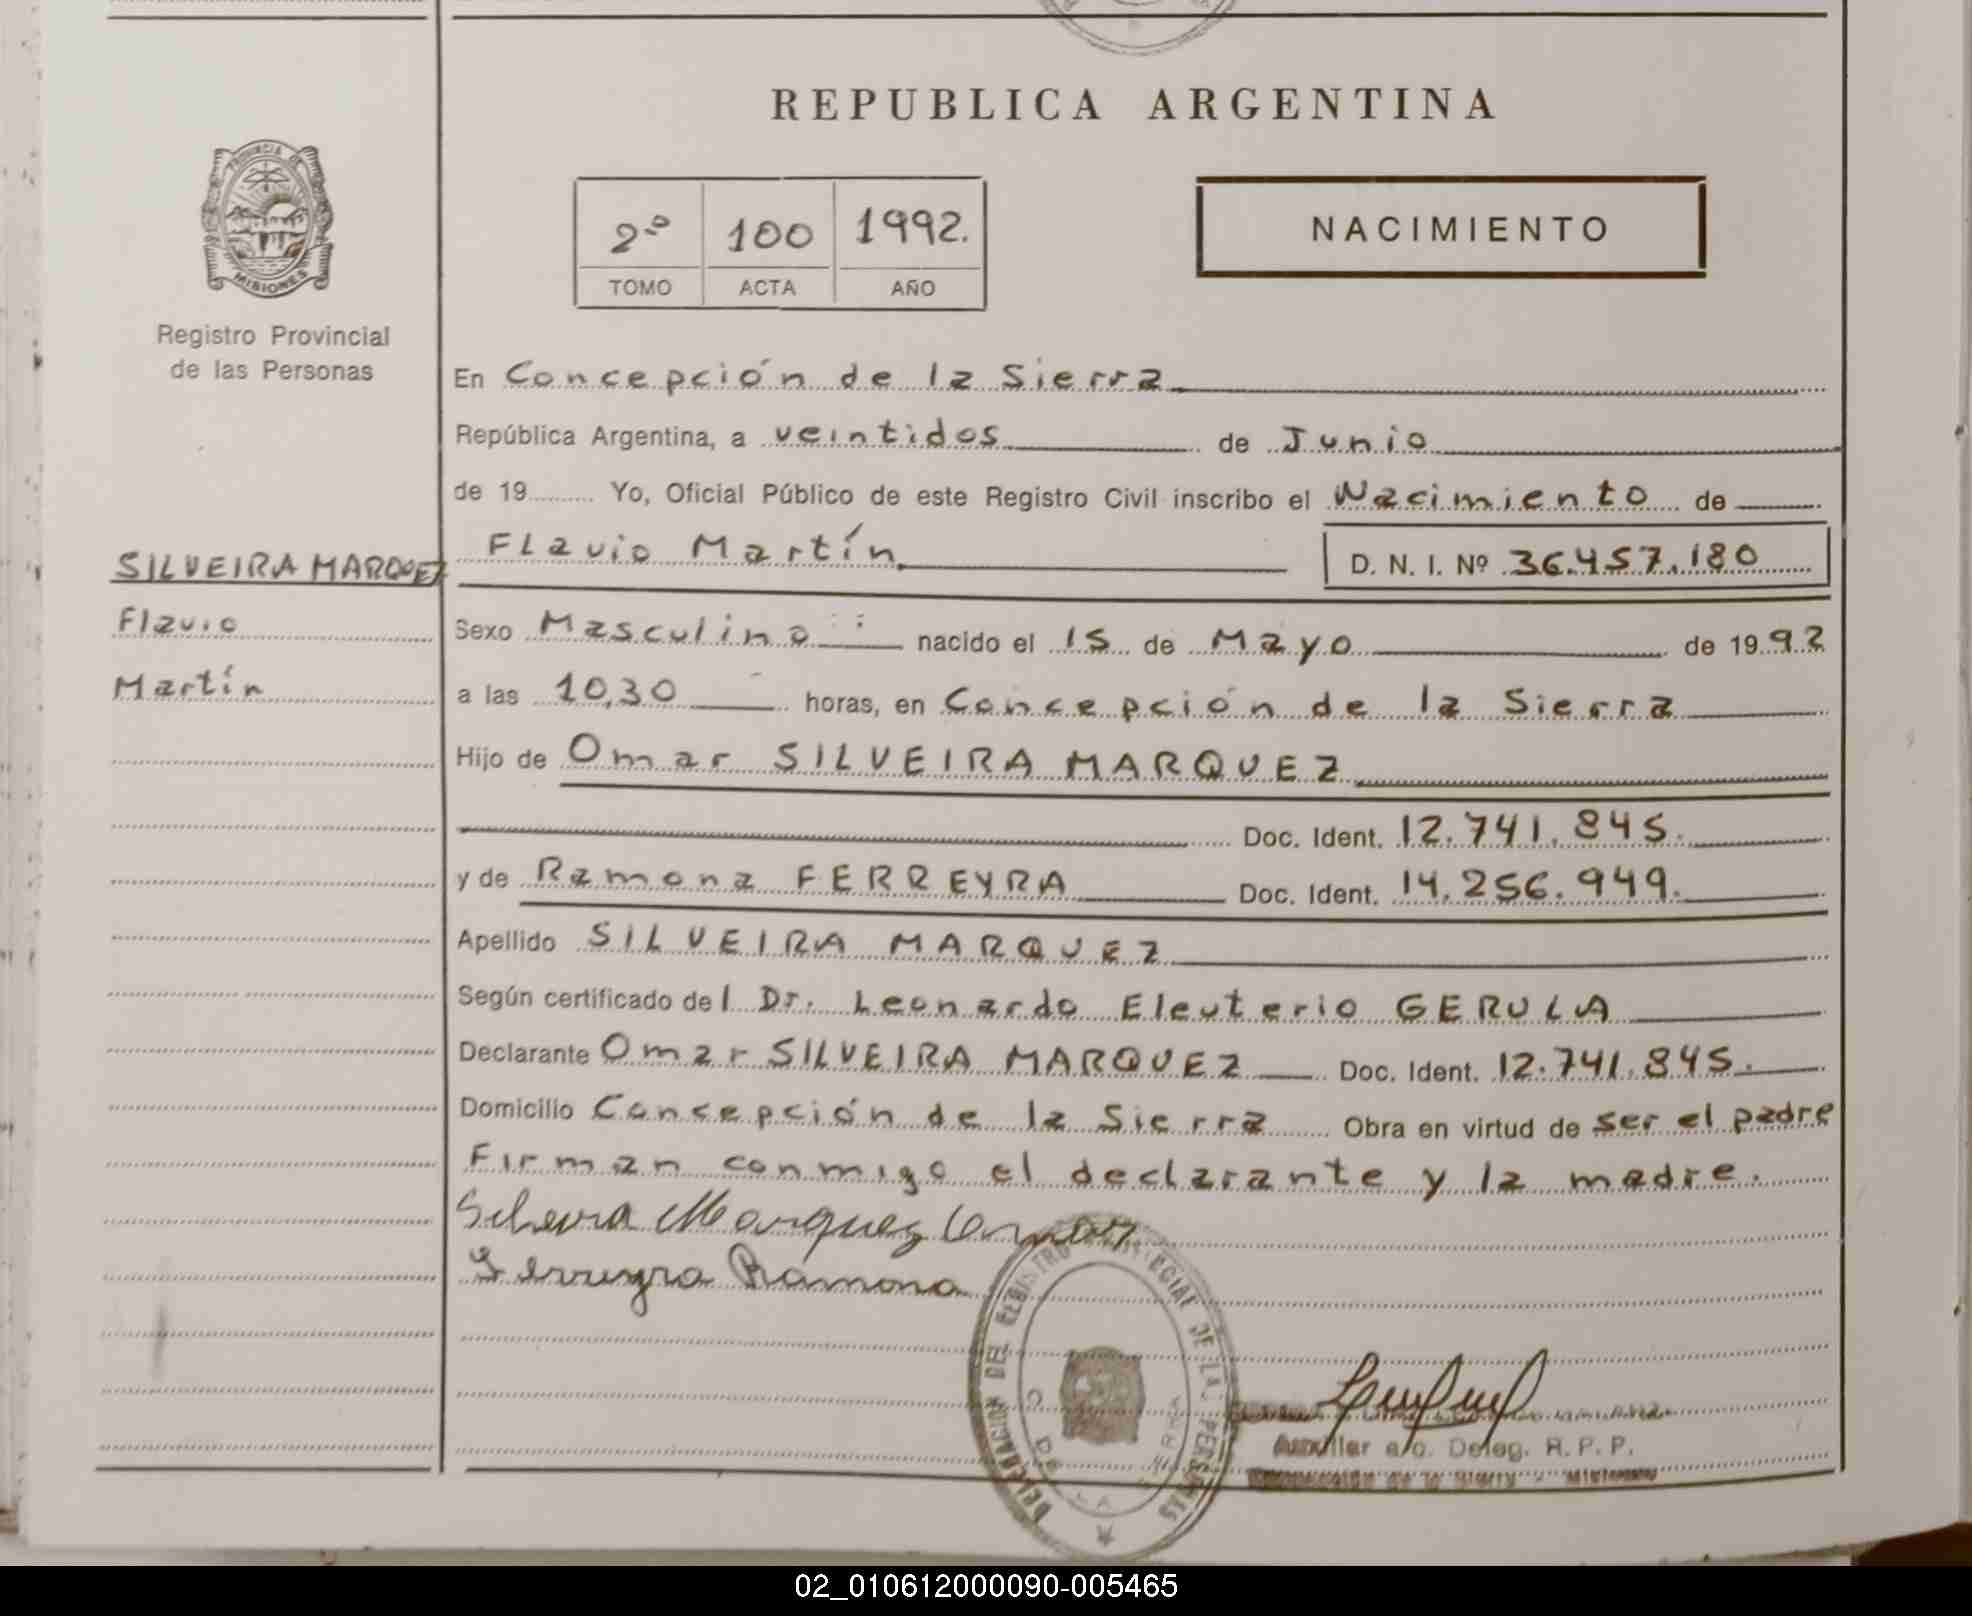 REPUBLICA ARGENTINA
PROVINCIA DE
MISIONES
Registro Provincial
de las Personas
2º 100 1992.
TOMO ACTA AÑO
NACIMIENTO
En Concepción de la Sierra
República Argentina, a veintidos de Junio
de 19 Yo, Oficial Público de este Registro Civil inscribo el Nacimiento de
SILVEIRA MARQUEZ
Flavio
Martín
Flavio Martín D. N. I. Nº 36.457.180
Sexo Masculino nacido el 15 de Mayo de 1992
a las 10,30 horas, en Concepción de la Sierra
Hijo de Omar SILVEIRA MARQUEZ
Doc. Ident. 12.741.845.
y de Ramona FERREYRA Doc. Ident. 14.256.949.
Apellido SILVEIRA MARQUEZ
Según certificado del Dr. Leonardo Eleuterio GERULA
Declarante Omar SILVEIRA MARQUEZ Doc. Ident. 12.741.845.
Domicilio Concepción de la Sierra Obra en virtud de ser el padre
Firman conmigo el declarante y la madre.
Silveira Marquez Omar
Ferreyra Ramona
DELEGACION DEL REGISTRO PROVINCIAL DE LAS PERSONAS
C. DE LA SIERRA
Auxiliar a/c. Deleg. R. P. P.
Concepción de la Sierra - Misiones
02_010612000090-005465